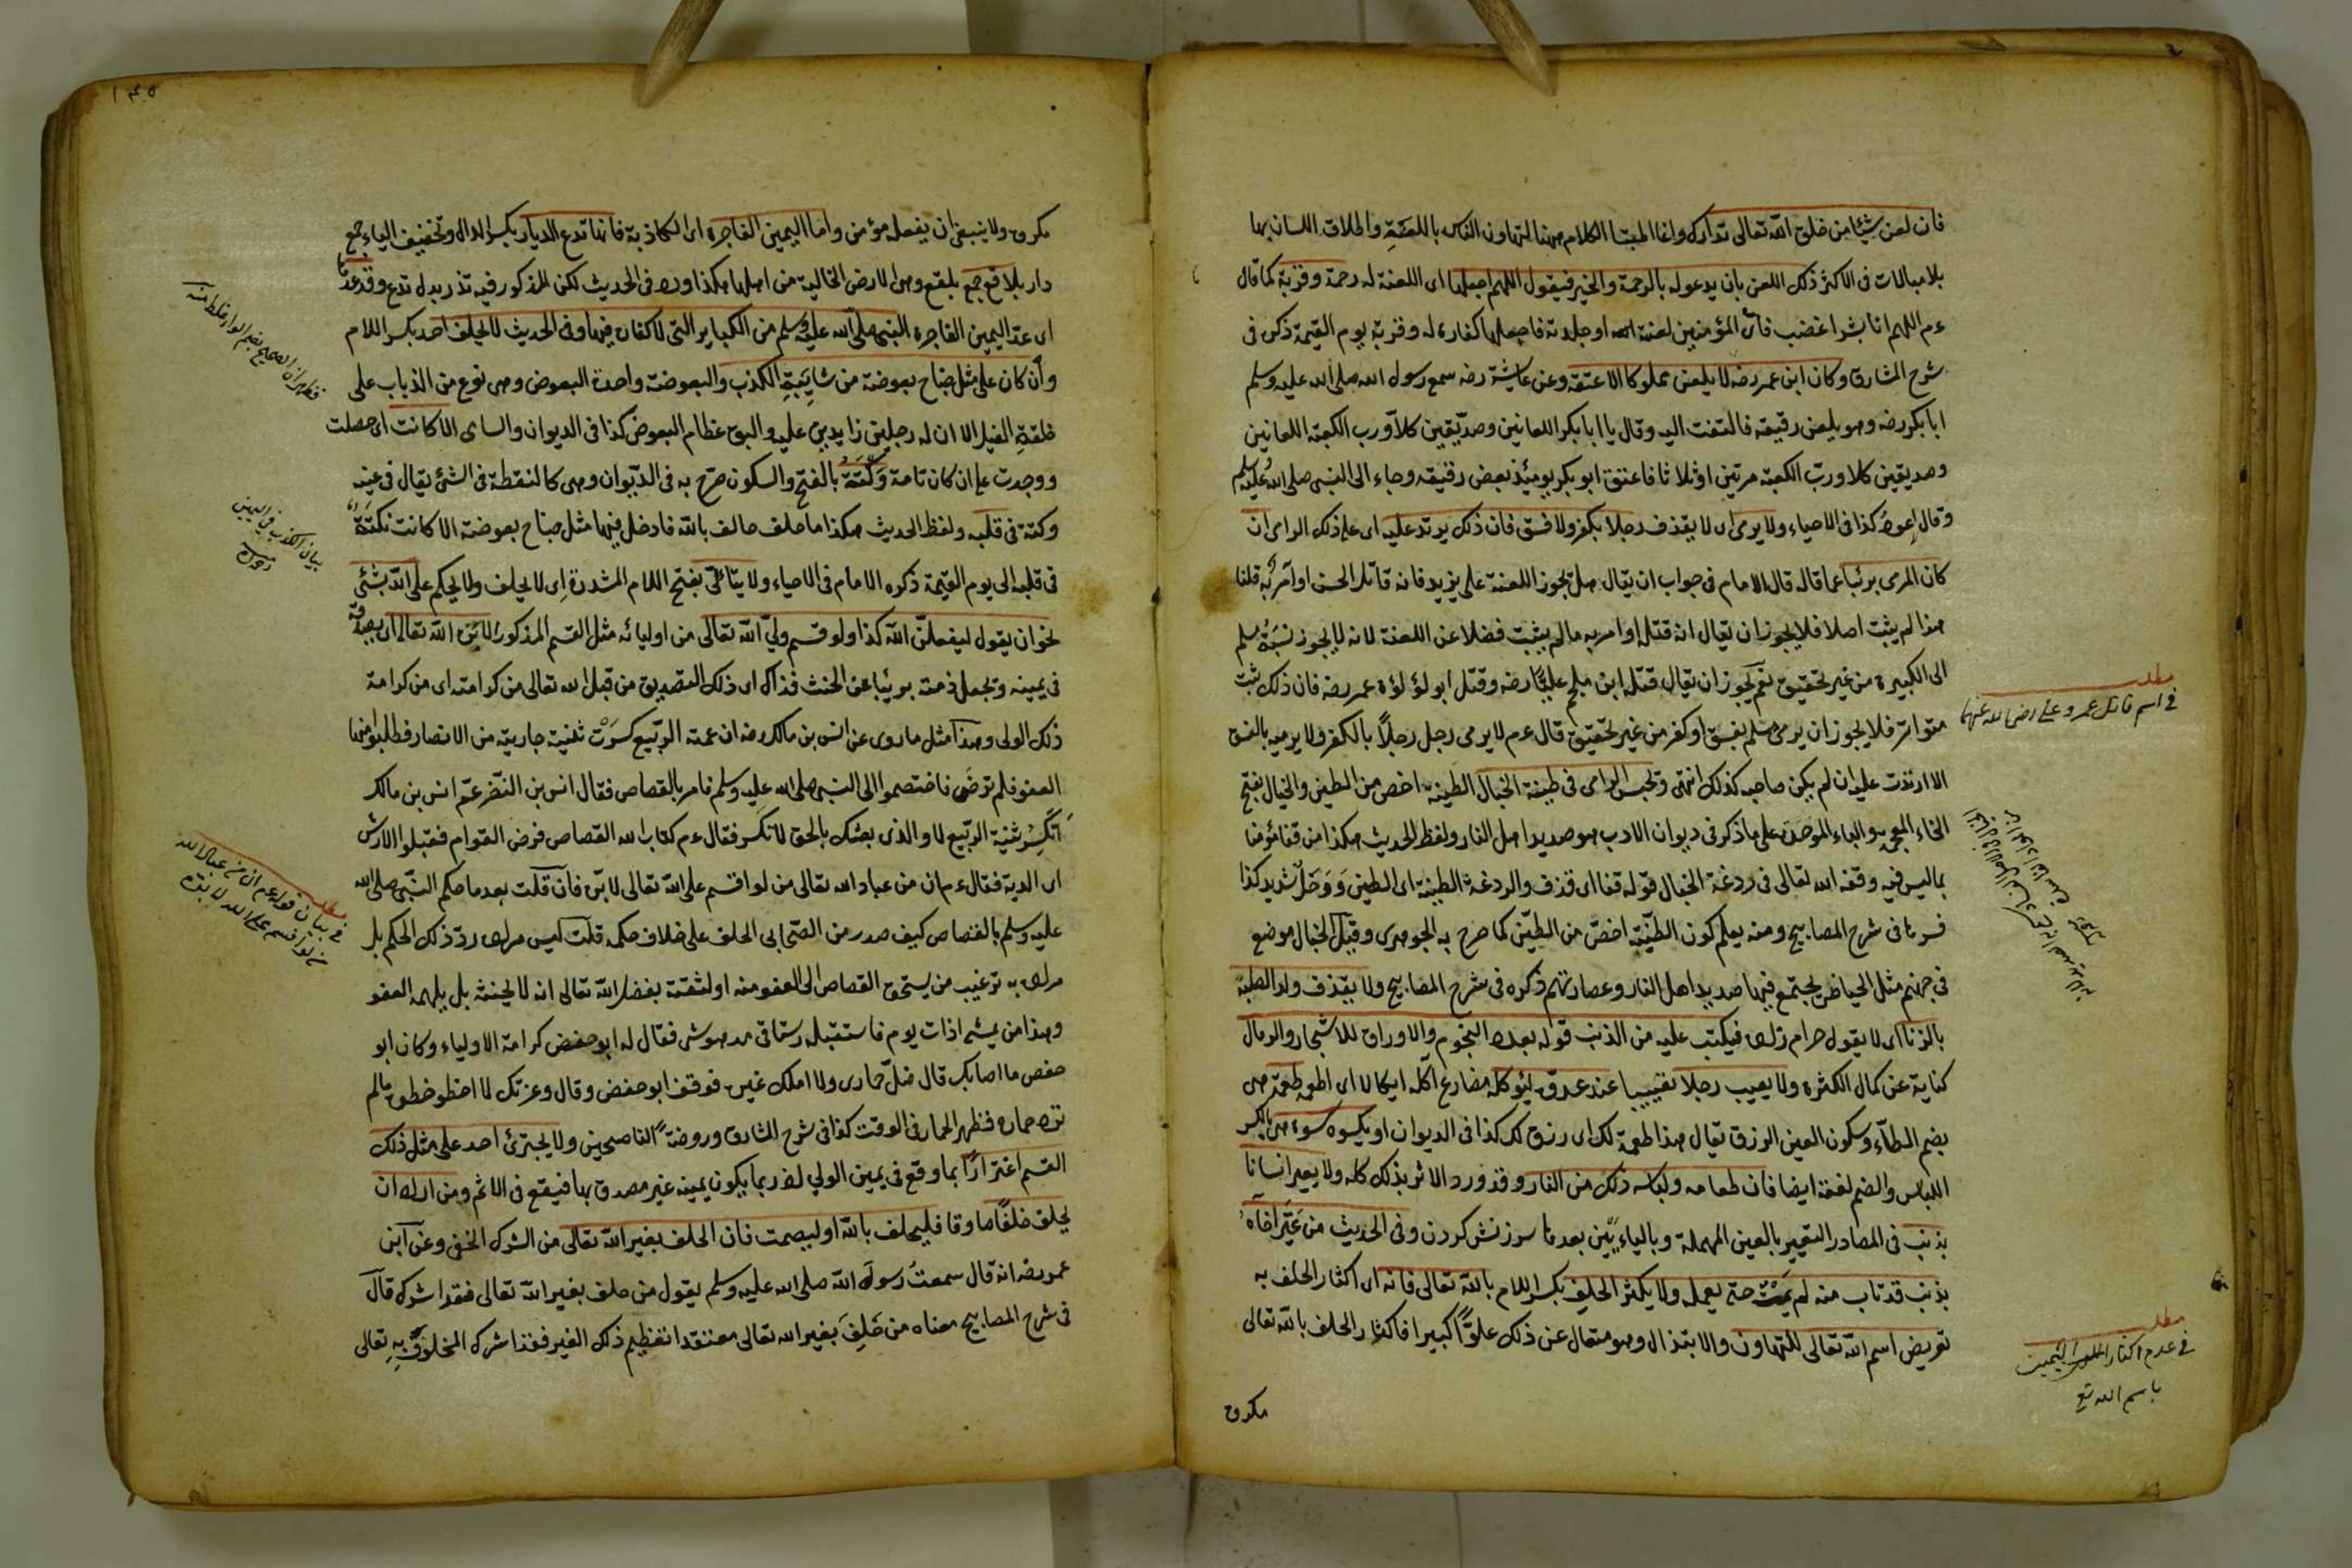 فان لعن شيئا من خلق الله تعالى تدارك وانما اطنبنا الكلام ههنا لتهاون الناس باللعنة واطلاق اللسان بها
بلا مبالات فى الاكثر ذلك اللعن بان يدعو له بالرحمة والخير فيقول اللهم اجعلها اى اللعنة له رحمة وقربة كما قال
عم اللهم انا بشر اغضب فاى المؤمنين لعنته او جلدته فاجعلها كفارة له وقربة يوم القيمة ذكر فى
شرح المشارق وكان ابن عمر رضه لا يلعن مملوكا الا عتقه وعن عايشة رضه سمع رسول الله صلى الله عليه وسلم
ابا بكر رضه وهو يلعن رقيقه فالتفت اليه وقال يا ابا بكر اللعانين وصديقين كلا ورب الكعبة اللعانين
وصديقين كلا ورب الكعبة مرتين او ثلاثا فاعتق ابو بكر يومئذ بعض رقيقه وجاء الى النبى صلى الله عليه وسلم
وقال اعود كذا فى الاحياء ولا يرمى اى لا يقذف رجلا بكفر ولا فسق فان ذلك يرتد عليه اى على ذلك الرامى ان
كان المرمى بريئا عما قاله قال الامام فى جواب ان يقال هل يجوز اللعنة على يزيد فانه قاتل الحسن او آمر به قلنا
هذا لم يثبت اصلا فلا يجوز ان يقال انه قتله او امر به مالم يثبت فضلا عن اللعنة لانه لا يجوز نسبة مسلم
الى الكبيرة من غير تحقيق نعم يجوز ان يقال قتل ابن ملجم عليا رضه وقتل ابو لؤلؤة عمر رضه فان ذلك ثبت
متواترا فلا يجوز ان يرمى مسلم بفسق او كفر من غير تحقيق قال عم لا يرمى رجل رجلا بالكفر ولا يرميه بالفسق
الا ارتدت عليه ان لم يكن صاحبه كذلك انتهى ويحبس الرامى فى طينة الخبال الطينة اخص من الطين والخبال بفتح
الخاء المعجمة والباء الموحدة على ما ذكر فى ديوان الادب هو صديد اهل النار ولفظ الحديث هكذا من قفا مؤمنا
بما ليس فيه وقفه الله تعالى فى ردغة الخبال قوله قفا اى قذف والردغة الطينة اى الطين ووحل شديد كذا
فسر نا فى شرح المصابيح ومنه يعلم كون الطينة اخص من الطين كما صرح به الجوهرى وقيل الخبال موضع
فى جهنم مثل الحياض يجتمع فيها صديد اهل النار وعصارتهم ذكره فى شرح المصابيح ولا يقذف ولد
بالزنا اى لا يقول حرام زاده فيكتب عليه من الذنب قوله بعدد النجوم والاوراق للاشجار والرمال
كناية عن كمال الكثرة ولا يعيب رجلا عند عدوه ليؤكله مضارع آكله ايكالا اى اطعمه طعمة هى
بضم الطاء وسكون العين الرزق يقال هذا طعمة لك اى رزق لك كذا فى الديوان او يكسوه كسوة هى بالكسر
اللباس والضم لغة ايضا فان طعامه ولباسه ذلك من النار وقد ورد الاثر بذلك كله ولا يعير انسانا
بذنب فى المصادر التعيير بالعين المهملة وبالياءين بعدها سرزنش كردن وفى الحديث من عير اخاه
بذنب قد تاب منه لم يمت حتى يعمله ولا يكثر الحلف بكسر اللام بالله تعالى فانه اى اكثار الحلف به
تعريض اسم الله تعالى للتهاون والابتذال وهو متعال عن ذلك علوا كبيرا فاكثار الحلف بالله تعالى
مكروه
مطلب
فى اسم قاتل عمر وعلى رضى الله عنهما
مطلب
فى عدم اكثار الحلف اليمين
باسم الله تع
١٤٥
مكروه ولا ينبغى ان يفعله مؤمن واما اليمين الفاجرة اى الكاذبة فانها تدع الديار بكسر الدال وتخفيف الياء جمع
دار بلاقع جمع بلقع وهى الارض الخالية من اهلها هكذا ورد فى الحديث لكن المذكور فيه تذر بدل تدع وقد عدها
اى عد اليمين الفاجرة النبى صلى الله عليه وسلم من الكباير التى لا كفارة فيها وفى الحديث لا يحلف احد بكسر اللام
وان كان على مثل جناح بعوضة من شايبة الكذب والبعوضة واحدة البعوض وهى نوع من الذباب على
خلقة الفيل الا ان له رجلين زايدين عليه والبق عظام البعوض كذا فى الديوان والساى الا كانت اى حصلت
ووجدت على ان كان تامة وكتة بالفتح والسكون صرح به فى الديوان وهى كالنقطة فى الشئ يقال فى عينه
وكتة فى قلبه ولفظ الحديث هكذا ما حلف حالف بالله فادخل فيها مثل جناح بعوضة الا كانت نكتة
فى قلبه الى يوم القيمة ذكره الامام فى الاحياء ولا يتألى بفتح اللام المشددة اى لا يحلف ولا يحكم على الله بشئ
نحو ان يقول ليفعلن الله كذا ولو قسم ولى الله تعالى من اوليائه مثل القسم المذكور لابره الله تعالى اى يصدقه
فى يمينه ويجعل ذمته بريئا عن الحنث فذاك اى ذلك التصديق من قبل الله تعالى من كرامته اى من كرامة
ذلك الولى وهذا مثل ما روى عن انس بن مالك رضه ان عمته الربيع كسرت ثنية جارية من الانصار فطلبوا منها
العفو فلم ترضى فاختصموا الى النبى صلى الله عليه وسلم فامر بالقصاص فقال انس بن النضر عم انس بن مالك
اتكسر ثنية الربيع لا والذى بعثك بالحق لا تكسر فقال عم كتاب الله القصاص فرضى القوام فقبلوا الارش
اى الدية فقال عم ان من عباد الله تعالى من لو اقسم على الله تعالى لابره فان قلت بعد ما حكم النبى صلى الله
عليه وسلم بالقصاص كيف صدر من الصحابى الحلف على خلاف حكمه قلت ليس مراده رد ذلك الحكم بل
مراده به ترغيب من يستحق القصاص الى العفو منه او لثقته بفضل الله تعالى انه لا يحنثه بل يلهمه العفو
وهذا من يمشى اذات يوم فاستقبله رستاقى مدهوش فقال له ابو حفص كرامة الاولياء وكان ابو
حفص ما اصابك قال ضل حمارى ولا املك غيره فوقف ابو حفص وقال وعزتك لا اخطو خطوة مالم
ترد حماره فظهر الحمار فى الوقت كذا فى شرح المشارق وروضة الناصحين ولا يجترئ احد على مثل ذلك
القسم اغترارا بما وقع فى يمين الولي اذ ربما يكون يمينه غير مصدق بها فيقع فى الاثم ومن اراد ان
يحلف حلفا صادقا فليحلف بالله او ليصمت فان الحلف بغير الله تعالى من الشرك الخفى وعن ابن
عمر رضه انه قال سمعت رسول الله صلى الله عليه وسلم يقول من حلف بغير الله تعالى فقد اشرك قال
فى شرح المصابيح معناه من حلف بغير الله تعالى معتقدا تعظيم ذلك الغير فقد اشرك المخلوق به تعالى
بيان الكذب فى اليمين
مطلب
فى بيان قوله عم ان من عباد الله
من لو اقسم على الله لابره